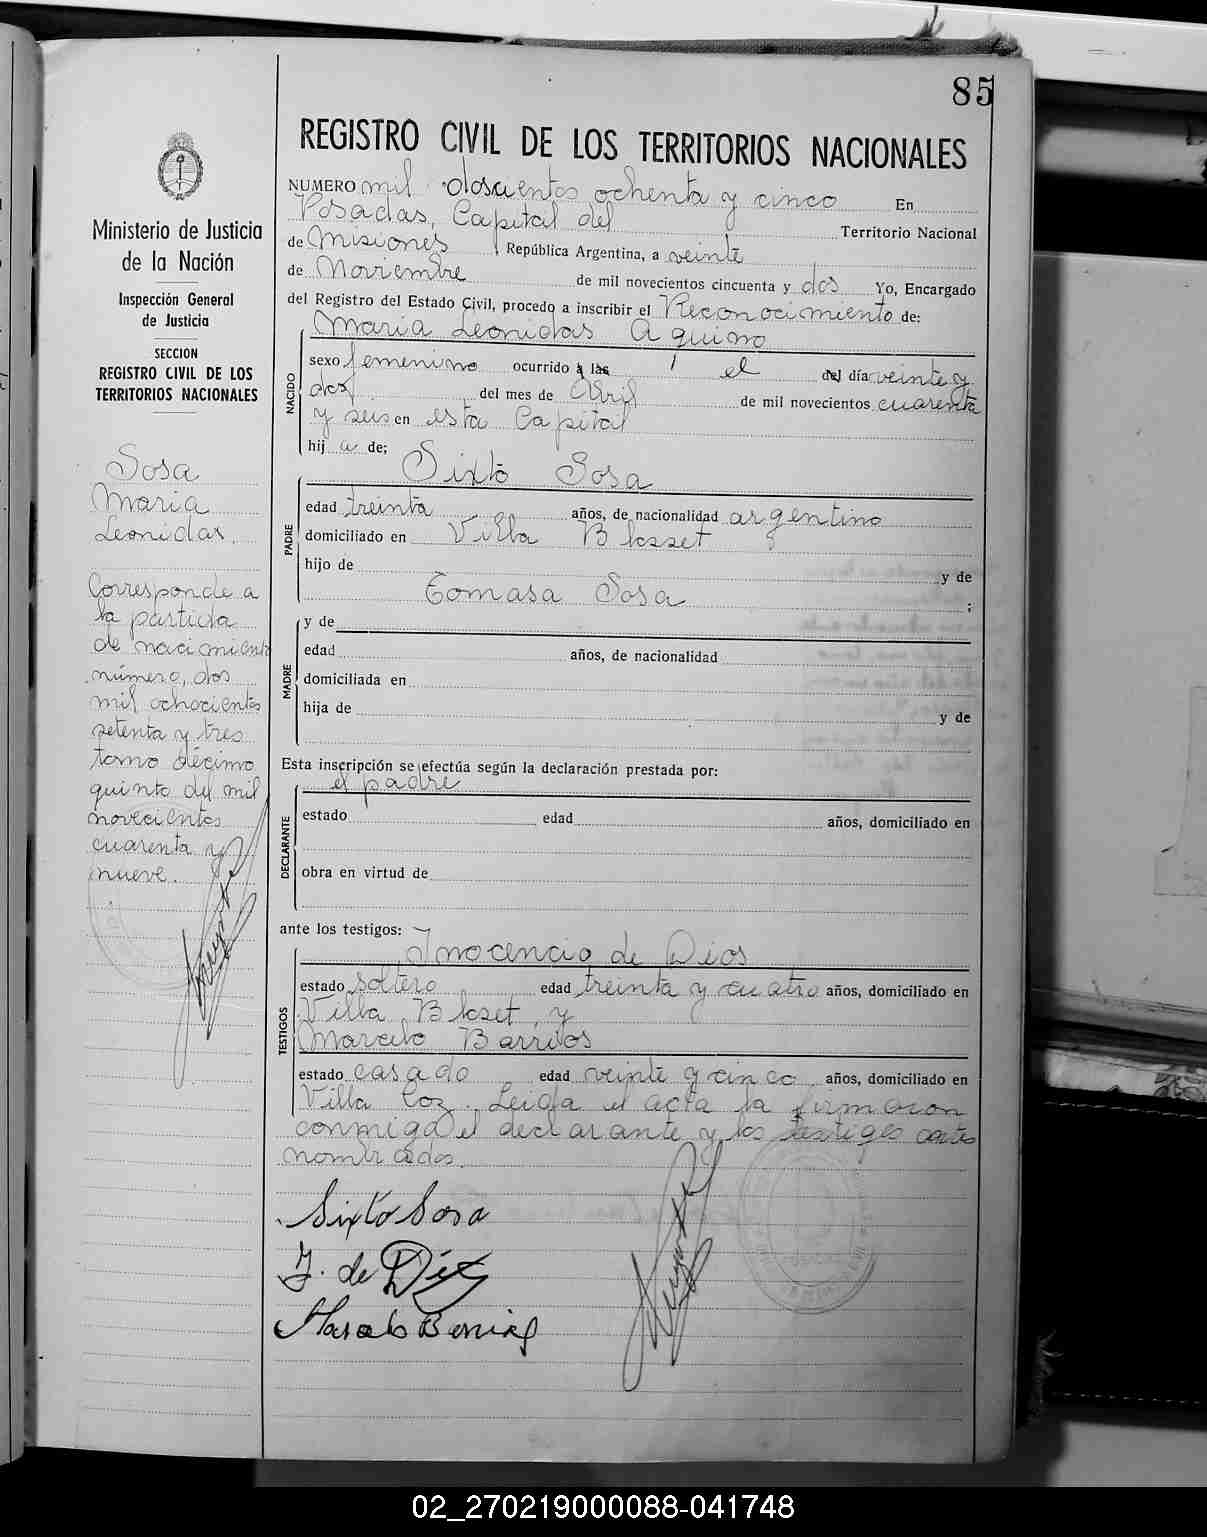 85
REGISTRO CIVIL DE LOS TERRITORIOS NACIONALES
NUMERO mil doscientos ochenta y cinco En
Posadas, Capital del Territorio Nacional
de Misiones, República Argentina, a veinte
de Noviembre de mil novecientos cincuenta y dos Yo, Encargado
del Registro del Estado Civil, procedo a inscribir el Reconocimiento de:
Maria Leonidas Aquino
NACIDO
sexo femenino ocurrido a las / el del día veinte y
dos del mes de Abril de mil novecientos cuarenta
y seis en esta Capital
hij a de:
Sixto Sosa
PADRE
edad treinta años, de nacionalidad argentino
domiciliado en Villa Blosset
hijo de y de
Tomasa Sosa ;
y de
MADRE
edad años, de nacionalidad
domiciliada en
hija de y de
Esta inscripción se efectúa según la declaración prestada por:
el padre
DECLARANTE
estado edad años, domiciliado en
obra en virtud de
ante los testigos:
Inocencio de Dios
TESTIGOS
estado soltero edad treinta y cuatro años, domiciliado en
Villa Bloset, y
Marcelo Barrios
estado casado edad veinte y cinco años, domiciliado en
Villa Coz. Leida el acta la firmaron
conmigo el declarante y los testigos antes
nombrados.
Sixto Sosa
J. de Dios
Marcelo
Ministerio de Justicia
de la Nación
Inspección General
de Justicia
SECCION
REGISTRO CIVIL DE LOS
TERRITORIOS NACIONALES
Sosa
Maria
Leonidas.
Corresponde a
la partida
de nacimiento
número, dos
mil ochocientos
setenta y tres
tomo décimo
quinto del mil
novecientos
cuarenta y
nueve.
02_270219000088-041748